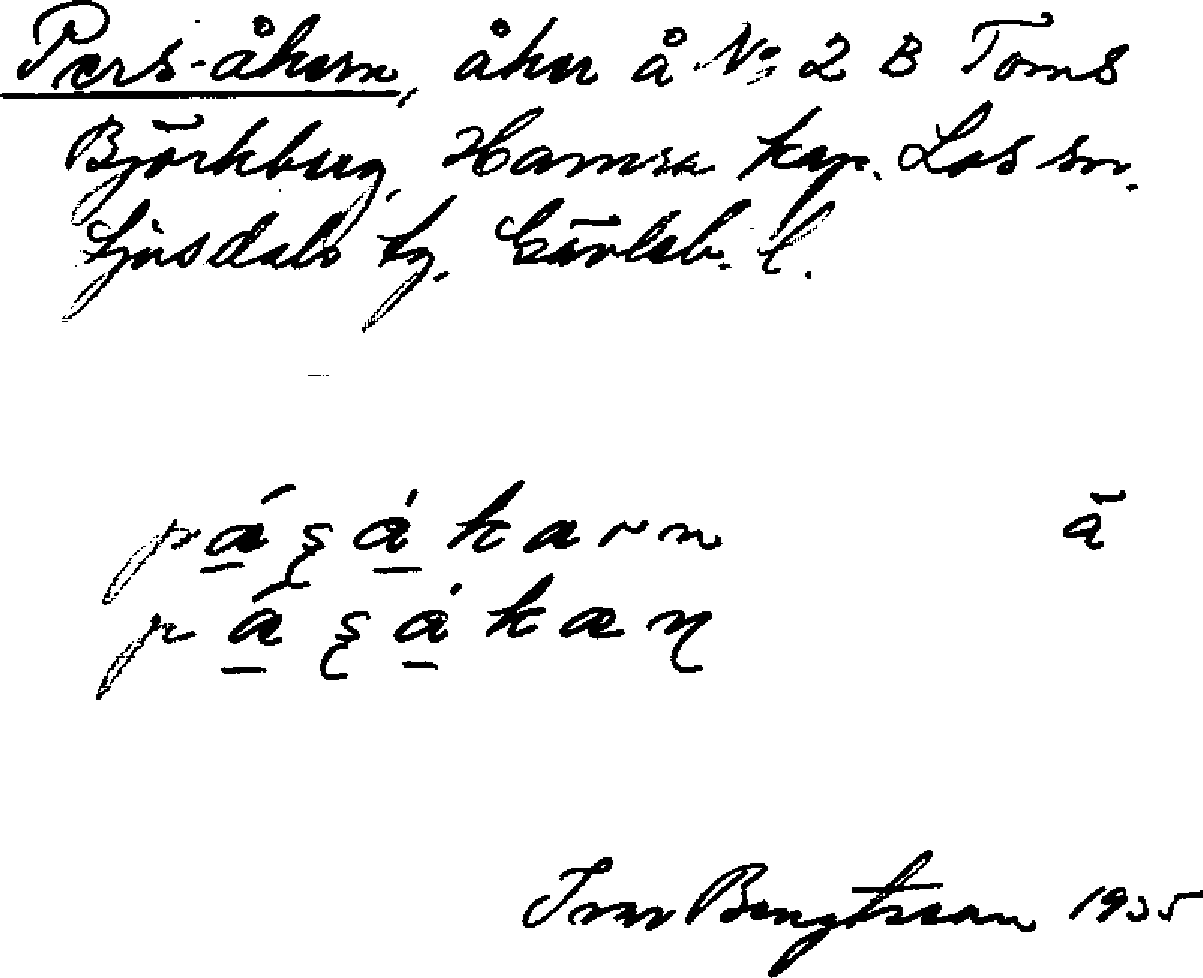 Pers-åkern, åker å No 2 B Toms
Björkberg, Hamra kap. Los sn.
Ljusdals tg. Gävleb. l.
ā
Ivar Bengtsson 1935